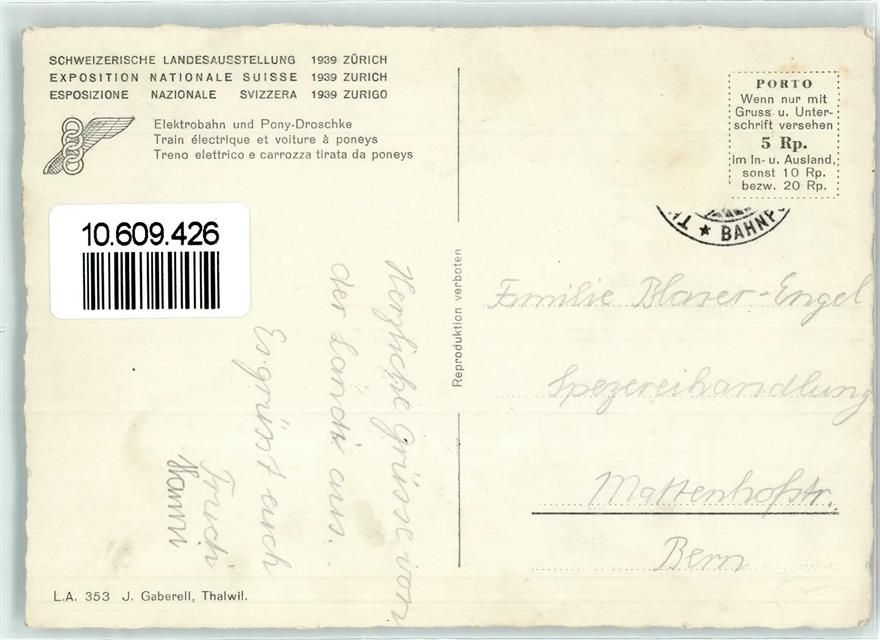 SCHWEIZERISCHE LANDESAUSSTELLUNG 1939 ZÜRICH
EXPOSITION NATIONALE SUISSE 1939 ZURICH
ESPOSIZIONE NAZIONALE SVIZZERA 1939 ZURIGO
Elektrobahn und Pony-Droschke
Train électrique et voiture à poneys
Treno elettrico e carrozza tirata da poneys
10.609.426
Herzliche Grüsse von
der Landi aus.
Es grüsst euch
Hanni
L.A. 353 J. Gaberell, Thalwil.
Reproduktion verboten
PORTO
Wenn nur mit
Gruss u. Unter-
schrift versehen
5 Rp.
im In- u. Ausland,
sonst 10 Rp.
bezw. 20 Rp.
★ BAHNPO
Familie Blaser-Engel
Spezereihandlung
Mattenhofstr.
Bern